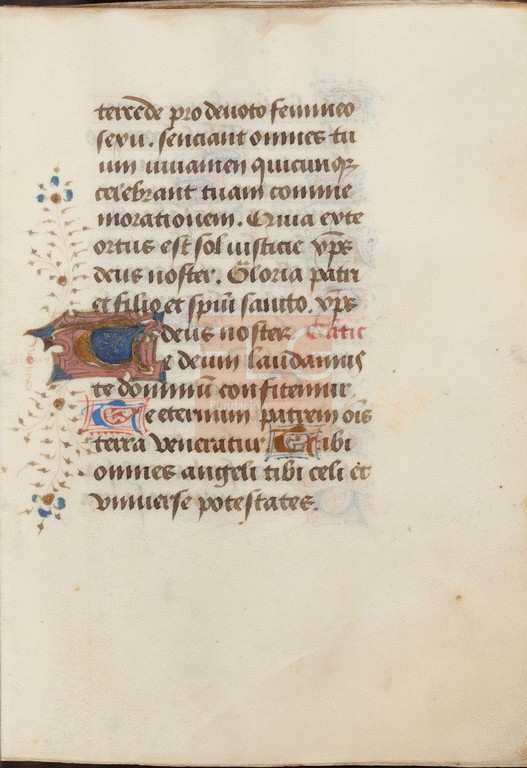 tercede pro deuoto femineo
sexu. senciant omnes tu
um iuuamen quicunqꝫ
celebrant tuam comme
morationem. Quia exte
ortus est sol iusticie xp̄s
deus noster. Gloria patri
et filio et spiūi sancto. xp̄s
deus noster. Cantic
Te deum laudamus
te dominū confitemur
Te eternum patrem oīs
terra veneratur Tibi
omnes angeli tibi celi et
vniuerse potestates.